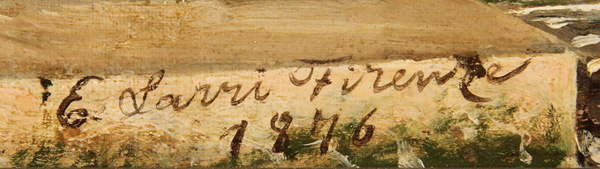 E Sarri Firenze
1876